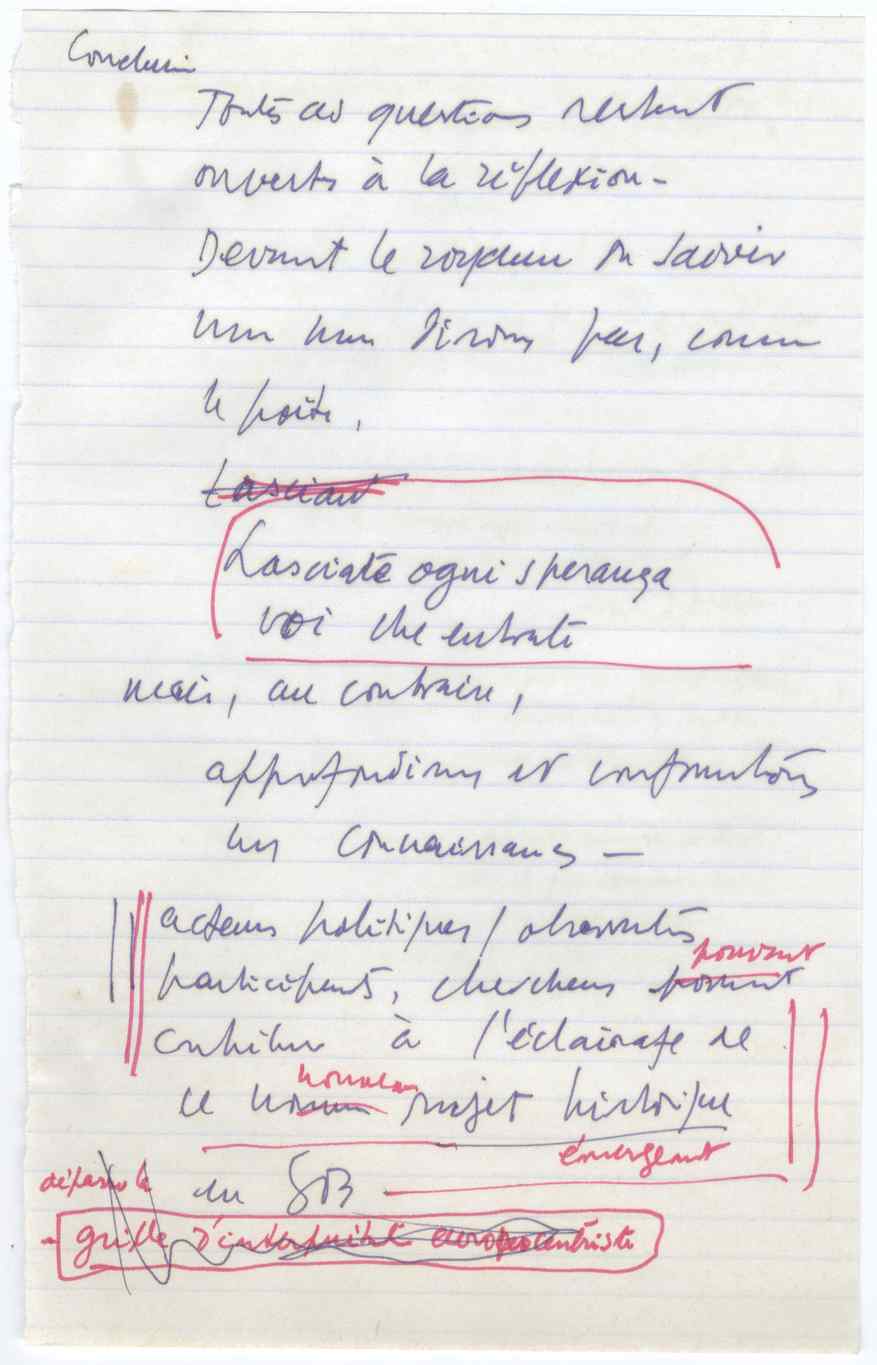 Conclusion
Toutes ces questions restent
ouvertes à la réflexion -
Devant le royaume du savoir
nous nous dirons pas, comme
le poète,
Lasciant
Lasciate ogni speranza
voi che entrate
mais, au contraire,
approfondirons et confronterons
nos connaissances -
acteurs politiques / observateurs
pouvant
participants, chercheurs
contribuer à l'éclairage de
nouveau
ce projet historique
émergeant
dépasser la
en
- grille d'interprétation européocentriste